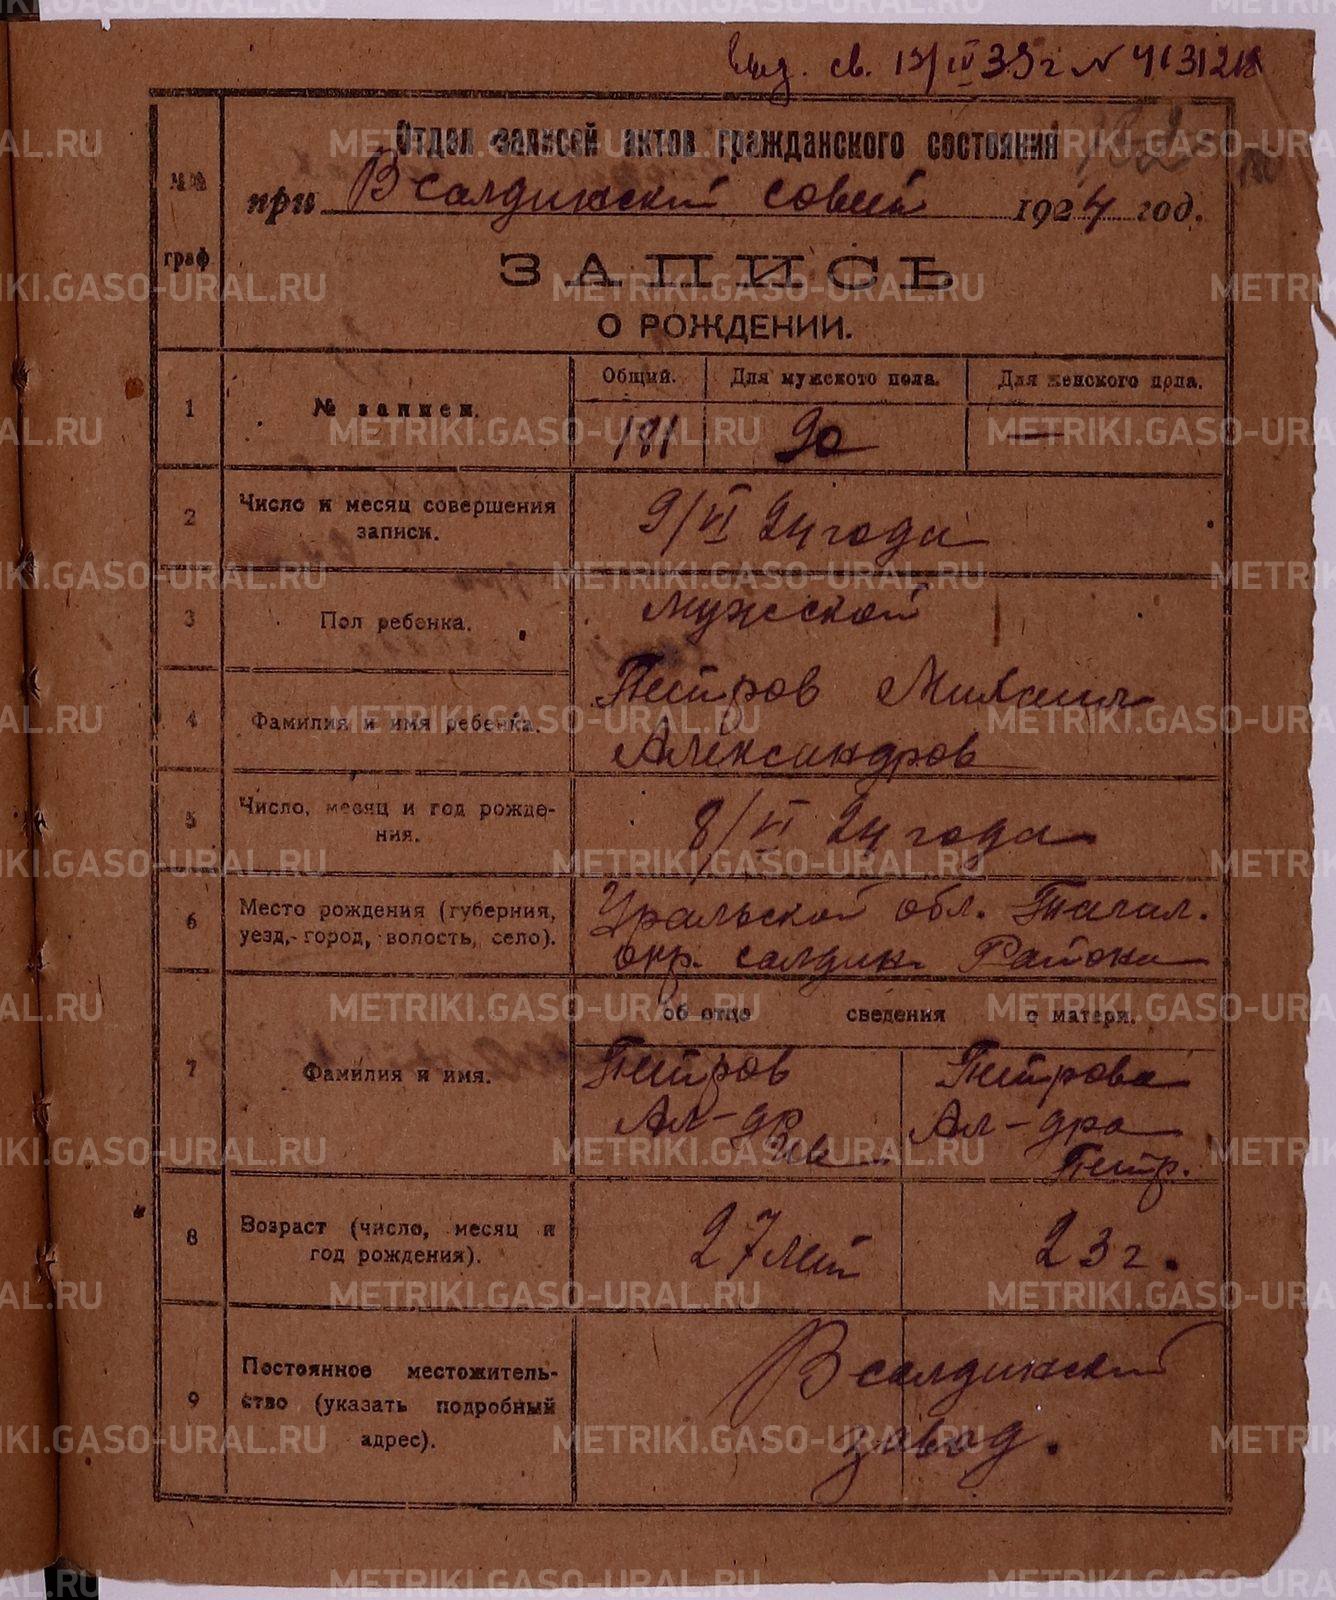 св. 13/IV 35 г N
Отдел записей актов гражданского состояния
№№ граф
при В салдинский совет 1924 год.
ЗАПИСЬ
О РОЖДЕНИИ.
Общий. Для мужского пола. Для женского пола.
1 № записи. 181 90 —
2 Число и месяц совершения записи. 9/VI 24 года
3 Пол ребенка. Мужской
4 Фамилия и имя ребенка. Петров Михаил
Александров
5 Число, месяц и год рождения. 8/VI 24 года
6 Место рождения (губерния, Уральской обл. Тагил.
уезд, город, волость, село). окр. салдин. Района
об отце сведения о матери.
7 Фамилия и имя. Петров Петрова
Ал-др Ал-дра
Ив Петр.
8 Возраст (число, месяц и год рождения). 27 лет 23 г.
9 Постоянное местожитель- В салдинский
ство (указать подробный завод.
адрес).
METRIKI.GASO-URAL.RU